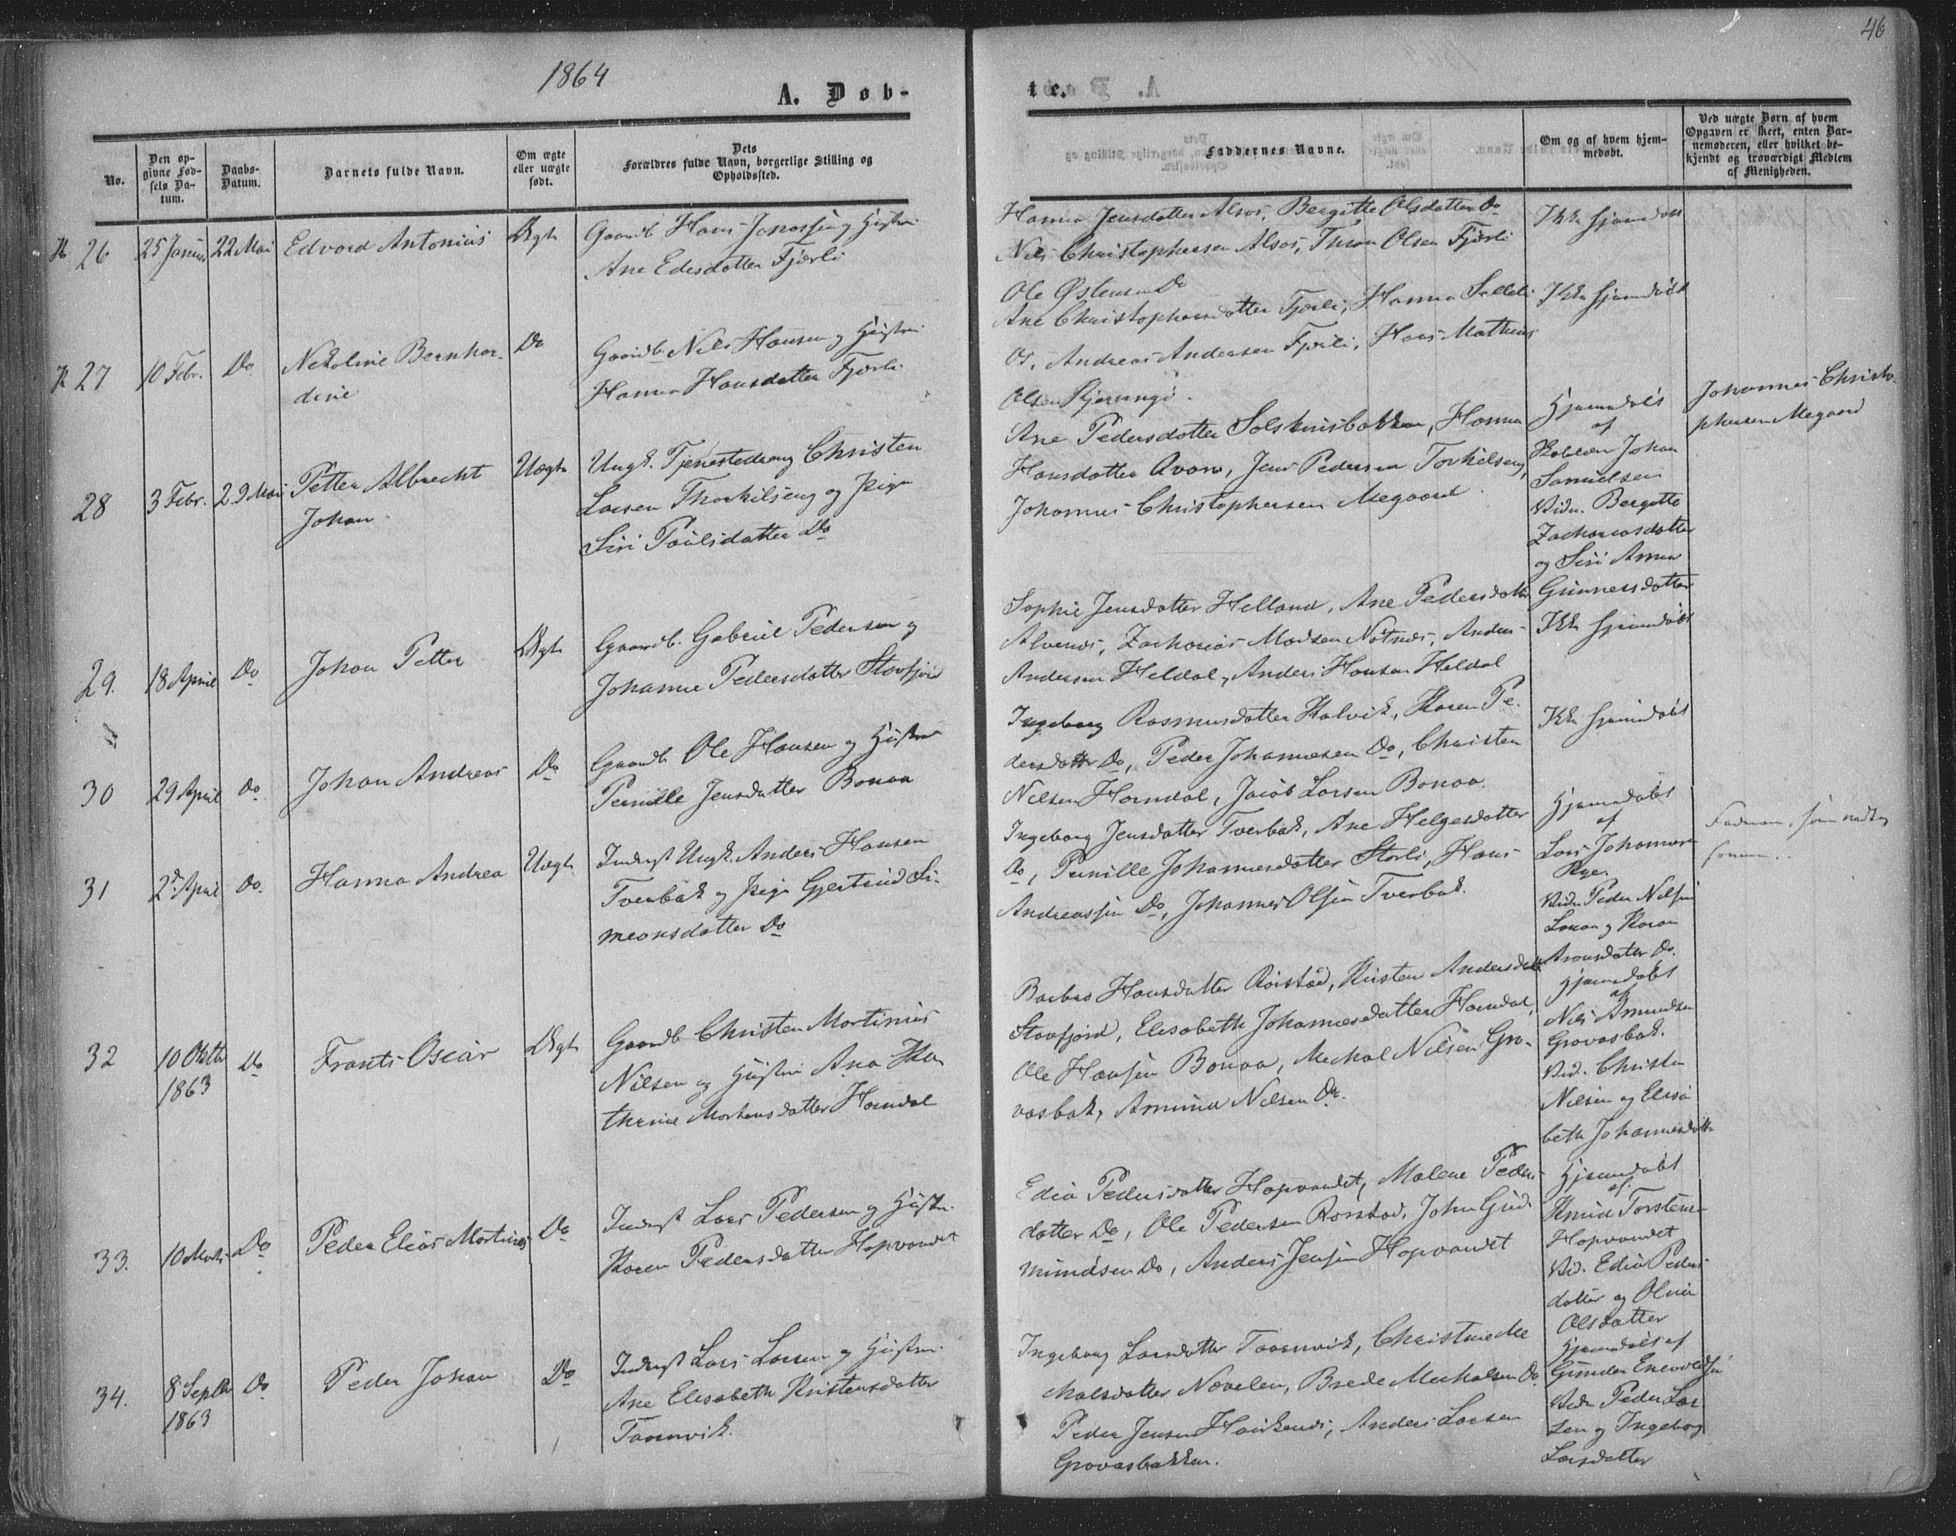 46
1864
A. Døb-
te.
No.
Den opgivne Fødsels Datum.
Daabs-Datum.
Barnets fulde Navn.
Om ægte eller uægte født.
Dets Forældres fulde Navn, borgerlige Stilling og Opholdssted.
Faddernes Navne.
Om og af hvem hjemmedøbt.
Ved uægte Børn af hvem Opgaven er skeet, enten Barnemoderen, eller hvilket bekjendt og troværdigt Medlem af Menigheden.
26
25 Januar
22 Mai
Edvard Antonius
Ægte
Gaardb. Hans Jonassen og Hustru
Ane Edisdatter Fjærli
Hanna Jensdatter Alsos, Bergitte Olsdatter Do
Nils Christophersen Alsos, Thron Olsen Fjærli
Ole Østensen Do
Ikke hjemdøbt
27
10 Febr.
Do
Nekoline Bernhar-
dine
Do
Gaardb. Nils Hansen og Hustru
Hanna Hansdatter Fjærli
Ane Christophersdatter Fjærli, Hanna
Andreas Andersen Fjærli, Hans Mathias
Olsen Kjerringø.
Ikke hjemdøbt
28
3 Febr.
29 Mai
Petter Albrecht
Johan.
Uægte
Ungk. Tjenestedreng Christen
Larsen Thorkilseng og Pige
Siri Paulsdatter Do
Ane Pedersdatter Solskinsbakken, Hanna
Hansdatter Qvarv, Jens Pedersen Torkilseng,
Johannes Christophersen Megaard.
Hjemdøbt
af
Johan
Samuelsen
Vidn. Bergitte
Zachariasdatter
og Siri Anna
Gunnersdatter
Johannes Christo-
phersen Megaard
29.
18 April
Do
Johan Petter
Ægte
Gaardb. Gabriel Pedersen og
Johanna Pedersdatter Storfjord
Sophie Jensdatter Helland, Ane Pedersdatter
Alvenes, Zacharias Madsen Nótnes, Anders
Andersen Heldal, Anders Hansen Heldal
Ikke hjemdøbt
30
29 April
Do
Johan Andreas
Do
Gaardb. Ole Hansen og Hustru
Pernille Jensdatter Bonaa
Ingeborg Rasmusdatter Kalvik, Karen Pe-
dersdatter Do, Peder Johannesen Do, Christen
Nilsen Horndal, Jacob Larsen Bonaa.
Ikke hjemdøbt
31
2d April
Do.
Hanna Andrea
Uægte
Inderst Ungk. Anders Hansen
Tverbak og Pige Gjertrud Si-
meonsdatter Do
Ingeborg Jensdatter Tverbak, Ane Helgesdatter
Do, Pernille Johannesdatter Storli, Hans
Andreassen Do, Johannes Olsen Tverbak.
Hjemdøbt
af
Lars Johannes
Vidn. Peder Nilsen
og Karen
Aronsdatter Do.
Faderen, som
32
10 Oktbr
1863
Do
Frants Oscar
Ægte
Gaardb. Christen Mortinius
Nilsen og Hustru Ana Ka-
thrine Mortensdatter Horndal
Barbro Hansdatter Rørstad, Kristen Andersdatter
Storfjord, Elisabeth Johannesdatter Horndal,
Ole Hansen Bonaa, Mechal Nilsen Gro-
vasbak, Amund Nilsen Do.
Hjemdøbt
af
Nils Amundsen
Grovasbak.
Vid. Christen
Nilsen og Elisa
beth Johannesdatter
33.
10 Marts
Do
Peder Elias Martines
Do
Inderst Lars Pedersen og Hustru
Karen Pedersdatter Hopvandet
Edia Pedersdatter Hopvandet, Malene Peders-
datter Do, Ole Pedersen Rørstad, John Gud-
mundsen Do, Anders Jensen Hopvandet
Hjemdøbt
af
Knud Torstensen
Hopvandet
Vid. Edia Peders
datter og Olina
Olsdatter
34.
8 Septbr
1863
Do
Peder Johan
Do
Inderst Lars Larsen og Hustru
Ane Elisabeth Kristensdatter
Taarnvik.
Ingeborg Larsdatter Taarnvik, Christine Me
kalsdatter Nævelen, Brede Mechalsen Do
Peder Jensen, Anders Larsen
Grovasbakken.
Hjemdøbt af
Gunder Enevoldsen
Vidn. Peder Lar
sen og Ingeborg
Larsdatter